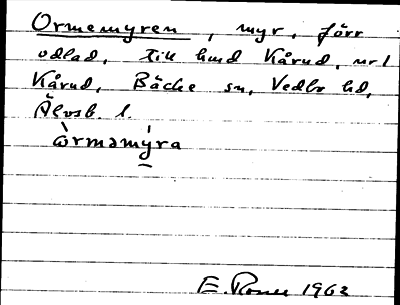 Ormemyren, myr, förr
odlad, till hmd Kårud, nr 1
Kårud, Bäcke sn, Vedbo hd,
Älvsb. l.
òrmamýra
E. Rosell 1962